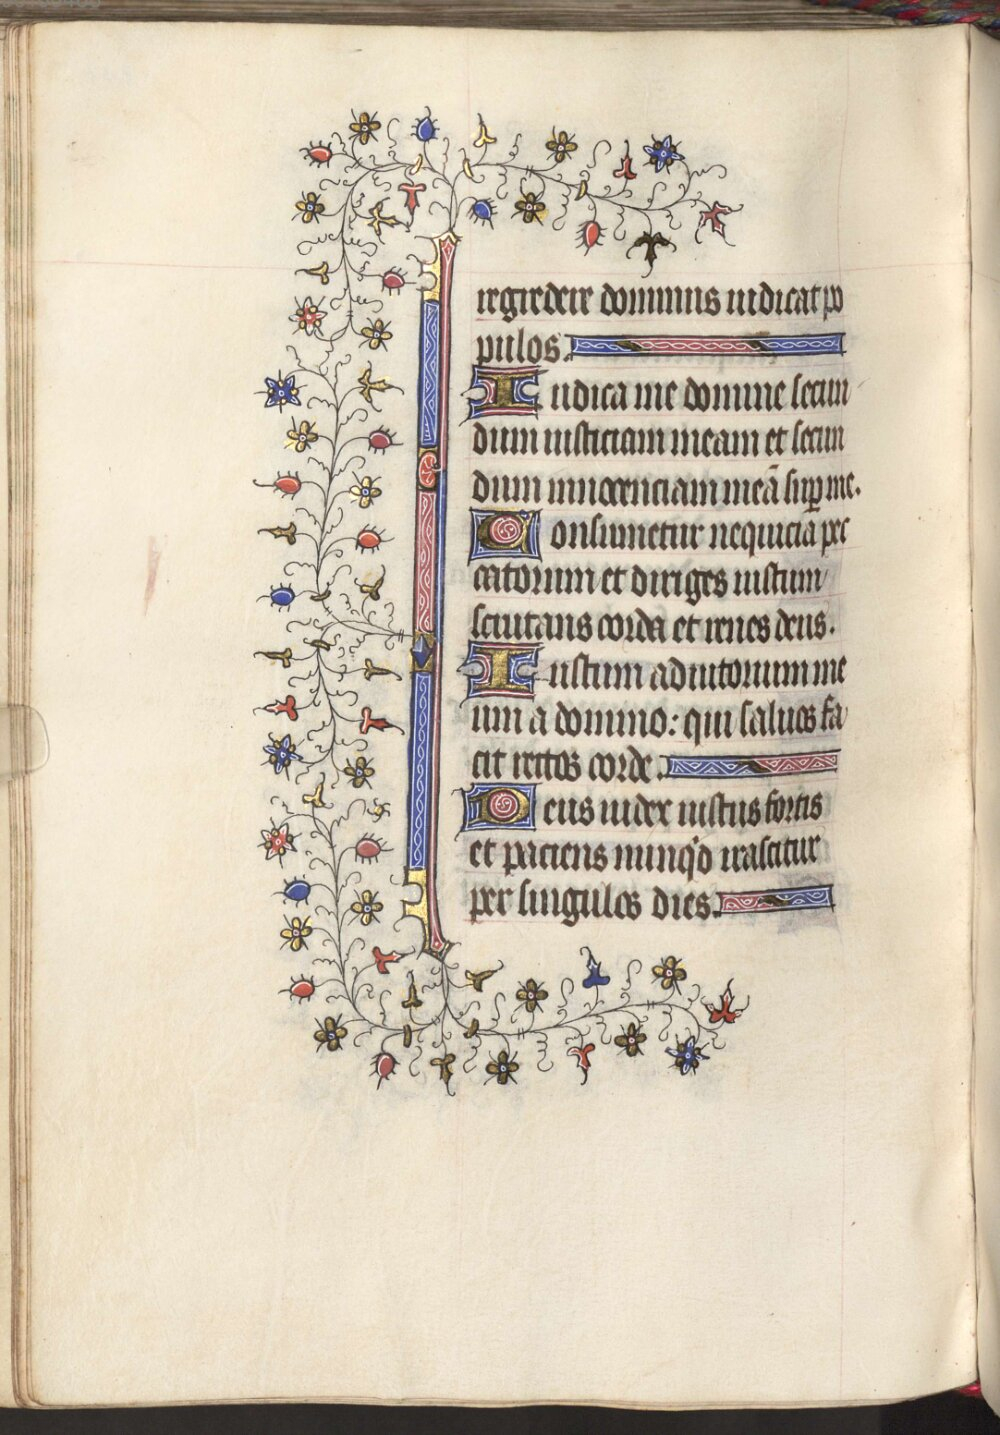 regredere dominus iudicat po
pulos.
Iudica me domine secun
dum iusticiam meam et secun
dum innocenciam meā suꝑ me.
Consumetur nequicia pec
catorum et diriges iustum
scrutans corda et renes deus.
Iustum adiutorium me
um a domino: qui saluos fa
cit rectos corde.
Deus iudex iustus fortis
et paciens nunq̄d irascitur
per singulos dies.